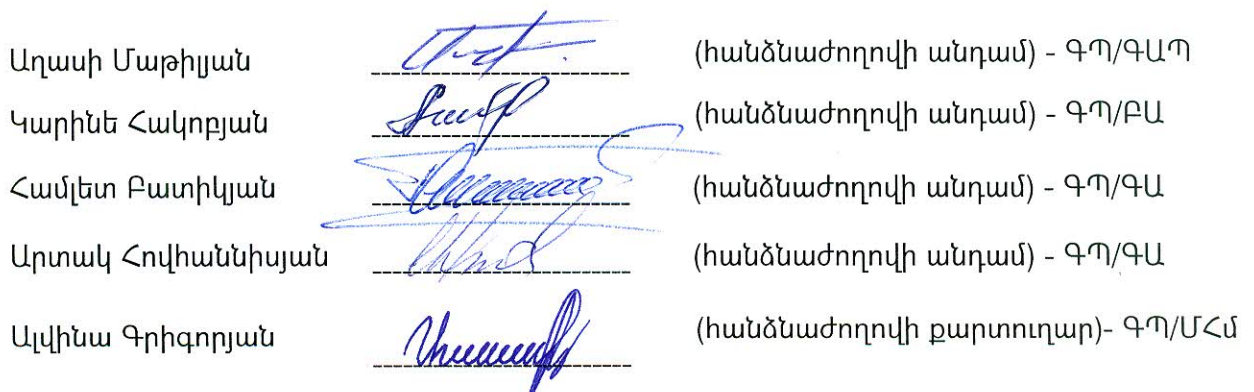 Աղասի Մաթիլյան (հանձնաժողովի անդամ) - ԳՊ/ԳԱՊ
Կարինե Հակոբյան (հանձնաժողովի անդամ) - ԳՊ/ԲԱ
Համլետ Բատիկյան (հանձնաժողովի անդամ) - ԳՊ/ԳԱ
Արտակ Հովհաննիսյան (հանձնաժողովի անդամ) - ԳՊ/ԳԱ
Ալվինա Գրիգորյան (հանձնաժողովի քարտուղար)- ԳՊ/ՄՀմ